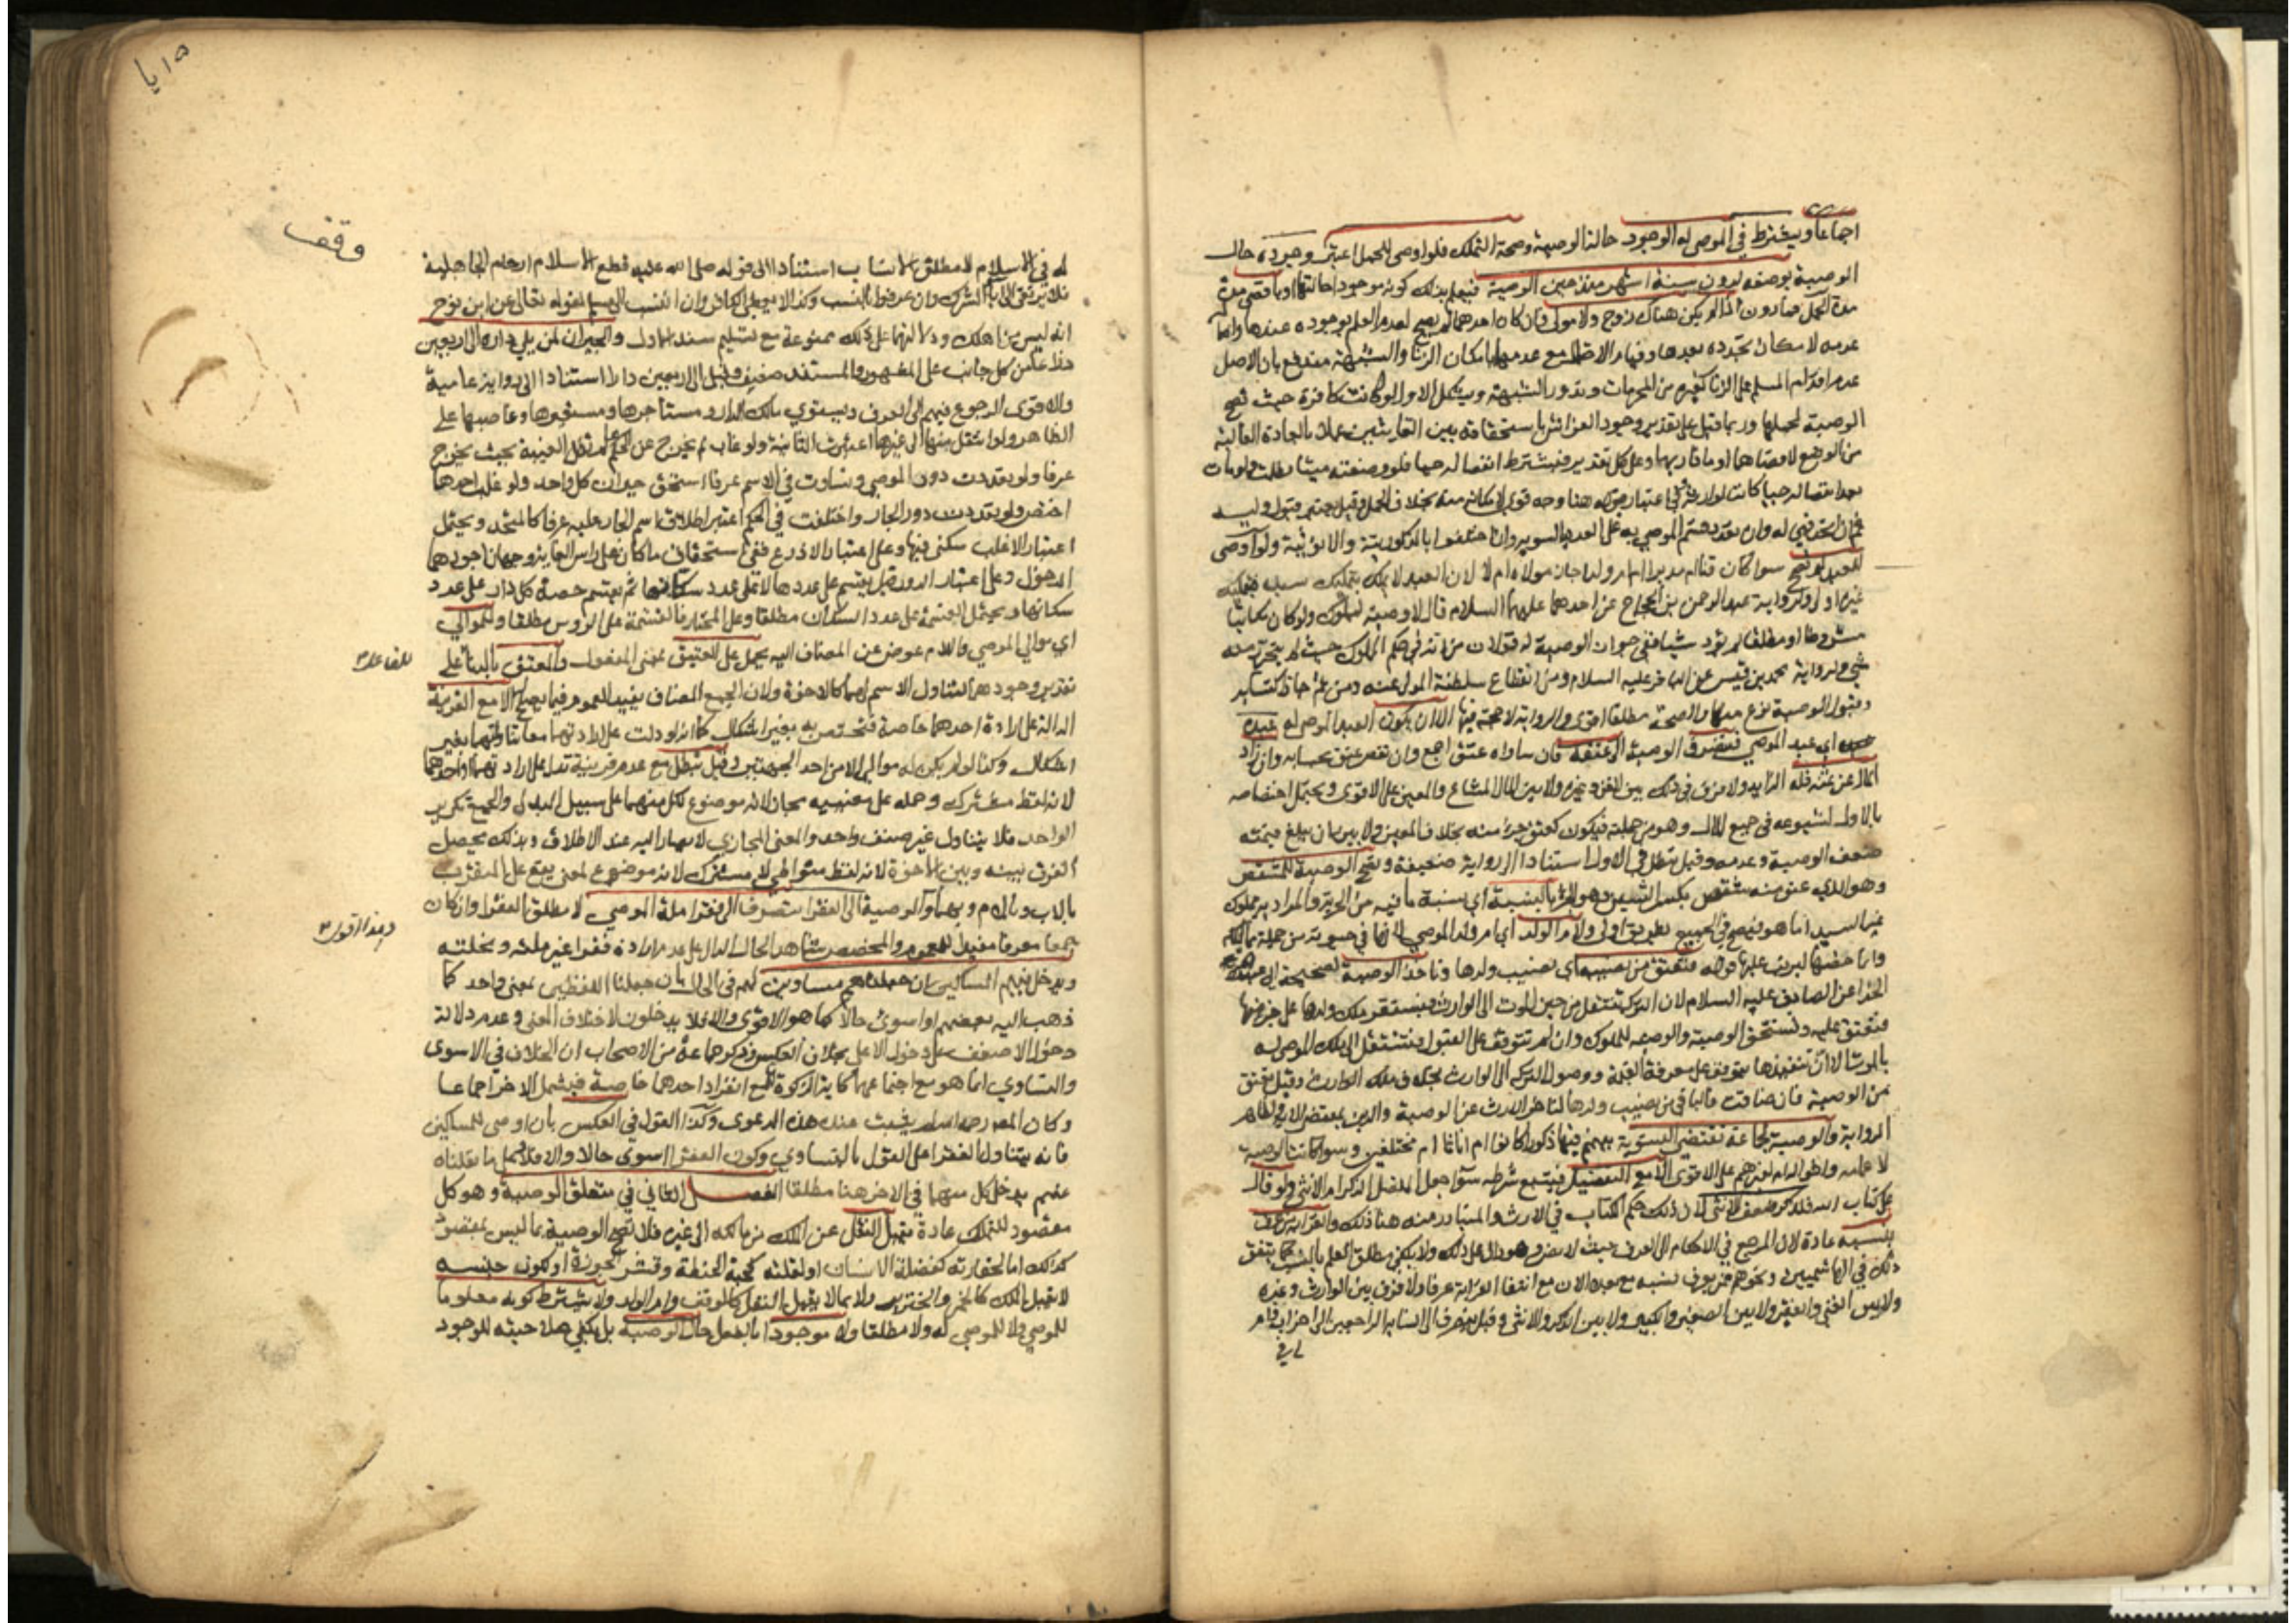 اجماعا ويشترط في الموصى له الوجود حالة الوصية وصحة التملك فلو اوصى للحمل اعتبر وجوده حال
الوصية بوضعه لدون ستة اشهر منذ حين الوصية فيعلم بذلك كونه موجودا حالتها او باقصى مدة
مدة الحمل فما دون اذا لم يكن هناك زوج ولا مولى فان كان احدهما لم يصح لعدم العلم بوجوده عندها واصالة
عدمه لامكان تجدده بعدها وقيام الاحتمال مع عدمهما بامكان الزنا والشبهة مندفع بان الاصل
عدم اقدام المسلم على الزنا كغيره من المحرمات وندور الشبهة ويشكل الاول لو كانت كافرة حيث تصح
الوصية لحملها وربما قيل على تقدير وجود الفراش باستحقاقه بين الغايتين عملا بالعادة الغالبة
من الوضع لاقصاهما او ما قاربها وعلى كل تقدير فيشترط انفصاله حيا فلو وضعته ميتا بطلت ولو مات
بعد انفصاله حيا كانت لوارثه وفي اعتبار قبوله هنا وجه قوي لامكانه منه بخلاف الحمل وقيل يعتبر قبول وليه
ثم ان اتحد فهي له وان تعدد قسم الموصى به على العدد بالسوية وان اختلفوا بالذكورية والانوثية ولو اوصى
للعبد لم يصح سوا كان قنا ام مدبرا ام ام ولد اجاز مولاه ام لا لان العبد لا يملك بتمليك سيده فبتمليك
غيره اولى ولرواية عبد الرحمن بن الحجاج عن احدهما عليهما السلام قال لا وصية لمملوك ولو كان مكاتبا
مشروطا او مطلقا لم يؤد شيئا ففي جواز الوصية له قولان من انه في حكم المملوك حيث لم يتحرر منه
شي ولرواية محمد بن قيس عن الباقر عليه السلام ومن انقطاع سلطنة المولى عنه ومن ثم جاز اكتسابه
وقبول الوصية نوع منها والصحة مطلقا اقوى والرواية لا حجة فيها الا ان يكون العبد الموصى له عبده
اي عبد الموصي فتصرف الوصية الى عتقه فان ساواه عتق اجمع وان نقص عتق بحسابه وان زاد
المال عن ثمنه فله الزايد ولا فرق في ذلك بين القن وغيره ولا بين المال المشاع والمعين على الاقوى ويحتمل اختصاصه
بالاول لشيوعه في جميع المال وهو من جملته فيكون كعتق جزء منه بخلاف المعين ولا بين ان يبلغ قيمته
ضعف الوصية وعدمه وقيل تبطل في الاول استنادا الى رواية ضعيفة وتصح الوصية للمشقص
وهو الذي عتق منه شقص بكسر الشين وهو الجزء بالنسبة اي بنسبة ما فيه من الحرية والمراد به مملوك
غير السيد اما هو فيصح في الجميع بطريق اولى ولام الولد اي ام ولد الموصي لانها في حيوته من جملة مماليكه
وانما خصها ليرتب عليها قوله فتعتق من نصيبه اي نصيب ولدها وتاخذ الوصية لصحيحة ابي عبيدة
الحذا عن الصادق عليه السلام لان التركة تنتقل من حين الموت الى الوارث فيستقر ملك ولدها على جزء منها
فتعتق عليه وتستحق الوصية والوصية للمملوك وان لم تتوقف على القبول فتنتقل الى ملك الموصى له
بالموت الا ان تنفيذها يتوقف على معرفة القيمة ووصول التركة الى الوارث بخلاف ملك الوارث وقيل تعتق
من الوصية فان ضاقت فالباقي من نصيب ولدها لتاخر الارث عن الوصية والدين بمقتضى الاية ولظاهر
الرواية والوصية لجماعة تقتضي التسوية بينهم فيها ذكورا كانوا ام اناثا ام مختلفين وسوا كانت الوصية
لاعمامه واخواله ام لغيرهم على الاقوى الا مع التفضيل فيتبع شرطه سوا جعل المفضل الذكر ام الانثى ولو قال
على كتاب الله فللذكر ضعف الانثى لان ذلك حكم الكتاب في الارث والمتبادر منه هنا ذلك والقرابة من عرف
بنسبه عادة لان المرجع في الاحكام الى العرف حيث لا نص وهو دال على ذلك ولا يكفي مطلق العلم بالنسب كما يتفق
ذلك في الهاشميين ونحوهم ممن يعرف نسبه مع بعده الان مع انتفا القرابة عرفا ولا فرق بين الوارث وغيره
ولا بين الغني والفقير ولا بين الصغير والكبير ولا بين الذكر والانثى وقيل ينصرف الى انسابه الراجعين الى اخر اب وام
له في
وقف
له في الاسلام لا مطلق الانساب استنادا الى قوله صلى الله عليه قطع الاسلام ارحام الجاهلية
فلا يرتقى الى اباء الشرك وان عرفوا بالنسب وكذا لا يعطى الكافر وان انتسب الى مسلم لقوله تعالى عن ابن نوح
انه ليس من اهلك ودلالتهما على ذلك ممنوعة مع تسليم سند الاول والجيران لمن يلي داره الى اربعين
ذراعا من كل جانب على المشهور والمستند ضعيف وقيل الى اربعين دارا استنادا الى رواية عامية
والاقوى الرجوع فيهم الى العرف ويستوي مالك الدار ومستاجرها ومستعيرها وغاصبها على
الظاهر ولو انتقل منها الى غيرها اعتبرت الثانية ولو غاب لم يخرج عن الحكم ما لم تطل الغيبة بحيث يخرج
عرفا ولو تعددت دور الموصي وتساوت في الاسم عرفا استحق جيران كل واحدة ولو غلب احدها
اختص ولو تعددت دور الجار واختلفت في الحكم اعتبر اطلاق اسم الجار عليه عرفا كالمتحد ويحتمل
اعتبار الاغلب سكنى فيها وعلى اعتبار الاذرع ففي استحقاق ما كان على راس الغاية وجهان اجودهما
الدخول وعلى اعتبار الدور قيل يقسم على عددها لا على عدد سكانها ثم يقسم حصة كل دار على عدد
سكانها ويحتمل القسمة على عدد السكان مطلقا وعلى المختار فالقسمة على الرؤس مطلقا وللموالي
اي موالي الموصي واللام عوض عن المضاف اليه يحمل على العتيق بمعنى المفعول والمعتق بالبنا على
للفاعل
تقدير وجودهما لتناول الاسم لهما كالاخوة ولان الجمع المضاف يفيد العموم فيما يصلح له الا مع القرينة
الدالة على ارادة احدهما خاصة فتختص به بغير اشكال كما انه لو دلت على ارادتهما معا تناولتهما بغير
اشكال وكذا لو لم يكن له موالي الا من احد الجهتين وقيل تبطل مع عدم قرينة تدل على ارادتهما او احدهما
لانه لفظ مشترك وحمله على معنييه مجاز لانه موضوع لكل منهما على سبيل البدل والجمع تكرير
الواحد فلا يتناول غير صنف واحد والمعنى المجازي لا يصار اليه عند الاطلاق وبذلك يحصل
الفرق بينه وبين الاخوة لانه لفظ متواطي لا مشترك لانه موضوع لمعنى يقع على المتقرب
بالاب وبالام وبهما والوصية الى الفقرا تنصرف الى فقرا ملة الموصي لا مطلق الفقرا وان كان
جمعا معرفا مفيدا للعموم والمخصص شاهد الحال الدال على عدم ارادة فقرا غير ملته ونحلته
ويدخل فيهم المساكين ان جعلناهم مساوين لهم في الحال بان جعلنا اللفظين بمعنى واحد كما
ذهب اليه بعضهم او اسوئ حالا كما هو الاقوى والا فلا يدخلون لاختلاف المعنى وعدم دلالة
دخول الاضعف على دخول الاعلى بخلاف العكس وذكر جماعة من الاصحاب ان الخلاف في الاسوى
والتساوي انما هو مع اجتماعهما كاية الزكوة اما مع انفراد احدهما خاصة فيشمل الاخر اجماعا
وكان المصر رحمه الله لم يثبت عنده هذه الدعوى وكذا القول في العكس بان اوصى للمساكين
فانه يتناول الفقرا على القول بالتساوي وكون الفقرا اسوى حالا والا فلا وعلى ما نقلناه
عنهم يدخل كل منهما في الاخر هنا مطلقا الفصل الثاني في متعلق الوصية وهو كل
مقصود للتملك عادة يقبل النقل عن الملك من مالكه الى غيره فلا تصح الوصية بما ليس بمقصود
كذلك اما لحقارته كفضلة الانسان او لقلته كحبة الحنطة وقشر الجوزة او لكون جنسه
لا يقبل الملك كالخمر والخنزير ولا بما لا يقبل النقل كالوقف وام الولد ولا يشترط كونه معلوما
للموصي ولا للموصى له ولا مطلقا ولا موجودا بالفعل حال الوصية بل يكفي صلاحيته للوجود